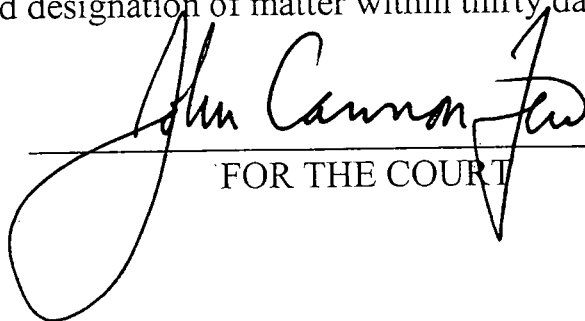 d designation of matter within thirty da
John Cannon Few
FOR THE COURT